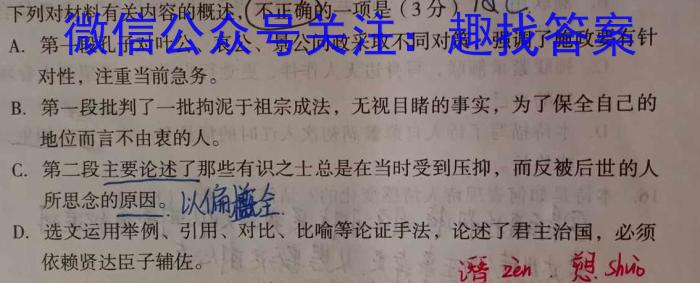 下列对材料有关内容的概述，不正确的一项是（3分）
微信公众号关注：趣找答案
A. 第一段孔子对叶公、哀公、景公问政采取不同对策，强调了施政要有针
对性，注重当前急务。
B. 第一段批判了一批拘泥于祖宗成法，无视目睹的事实，为了保全自己的
地位而言不由衷的人。
C. 第二段主要论述了那些有识之士总是在当时受到压抑，而反被后世的人
所思念的原因。以偏盖全
D. 选文运用举例、引用、对比、比喻等论证手法，论述了君主治国，必须
依赖贤达臣子辅佐。
谮 zèn 愬 shuò